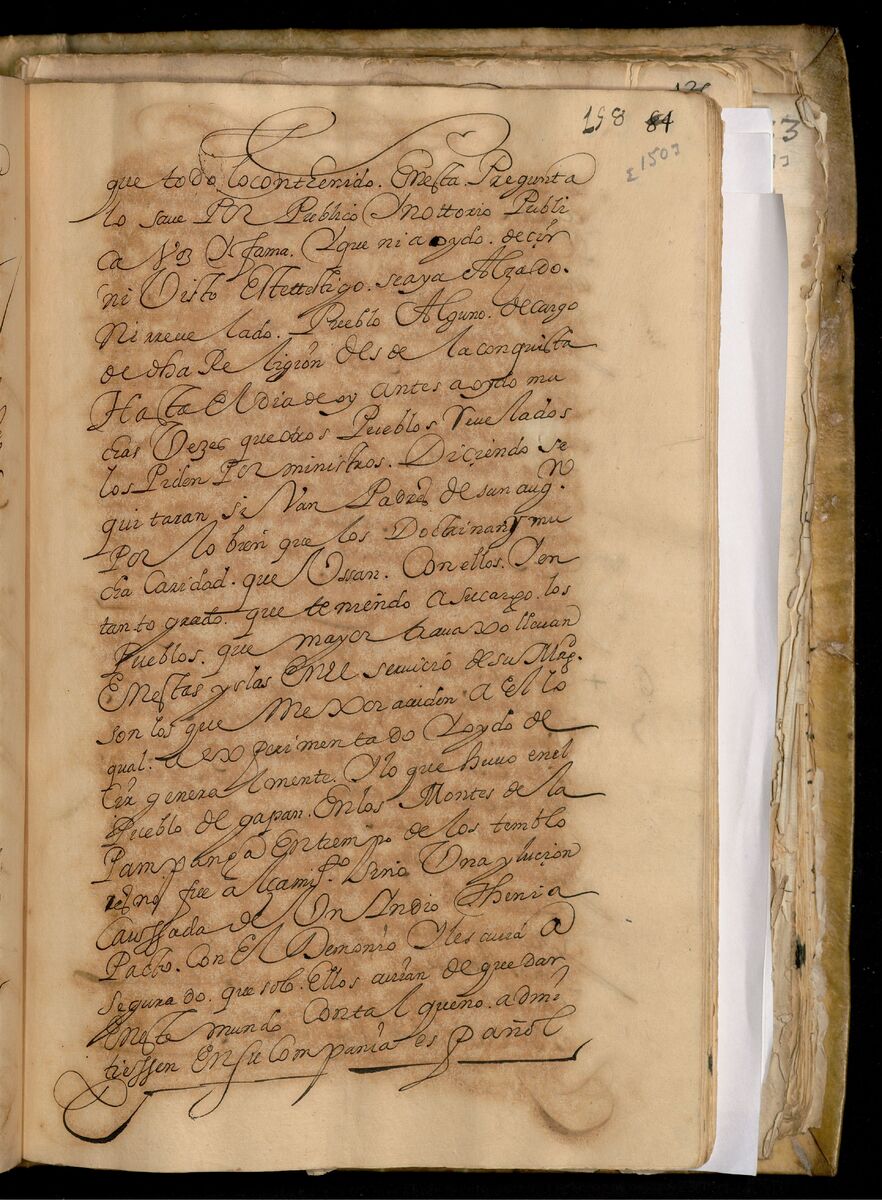 158 84
[150]
que todo lo conthenido. Enesta. Pregunta
lo save Por Publico Ynottorio Publi
ca Voz Y fama. Yque ni a oydo. decir
ni Visto Estettestigo. seaya Alzado.
Ni rreve lado. Pueblo Alguno. de cargo
de dha Religion Des de la conquista
Hasta El dia de oy antes a oydo mu
chas Vezes que otros Pueblos Revelados
los Piden Por ministros. Diciendo se
quitaran si Van Padres de san augn
Por lo bien que los Doctrinan y mu
cha Caridad. que Ussan. Con ellos. Yen
tanto grado. que teniendo a su cargo. los
Pueblos. que mayor travaxo llevan
Enestas yslas En el servicio de su Magd.
son los que Mexor acuden a El lo
qual. a experimentado Y oydo de
cir generalmente. Y lo que huvo en el
Pueblo de gapan. En los Montes de la
Pampanga En tiempo de los temblo
res no fue a lcamiso sino Una ylucion
Caussada de Un Yndio thenia
Pacto. Con El Demonio Y les avia a
segurado. que solo. Ellos avian de quedar
Eneste mundo Con tal que no. admi
tiessen En su Compania español